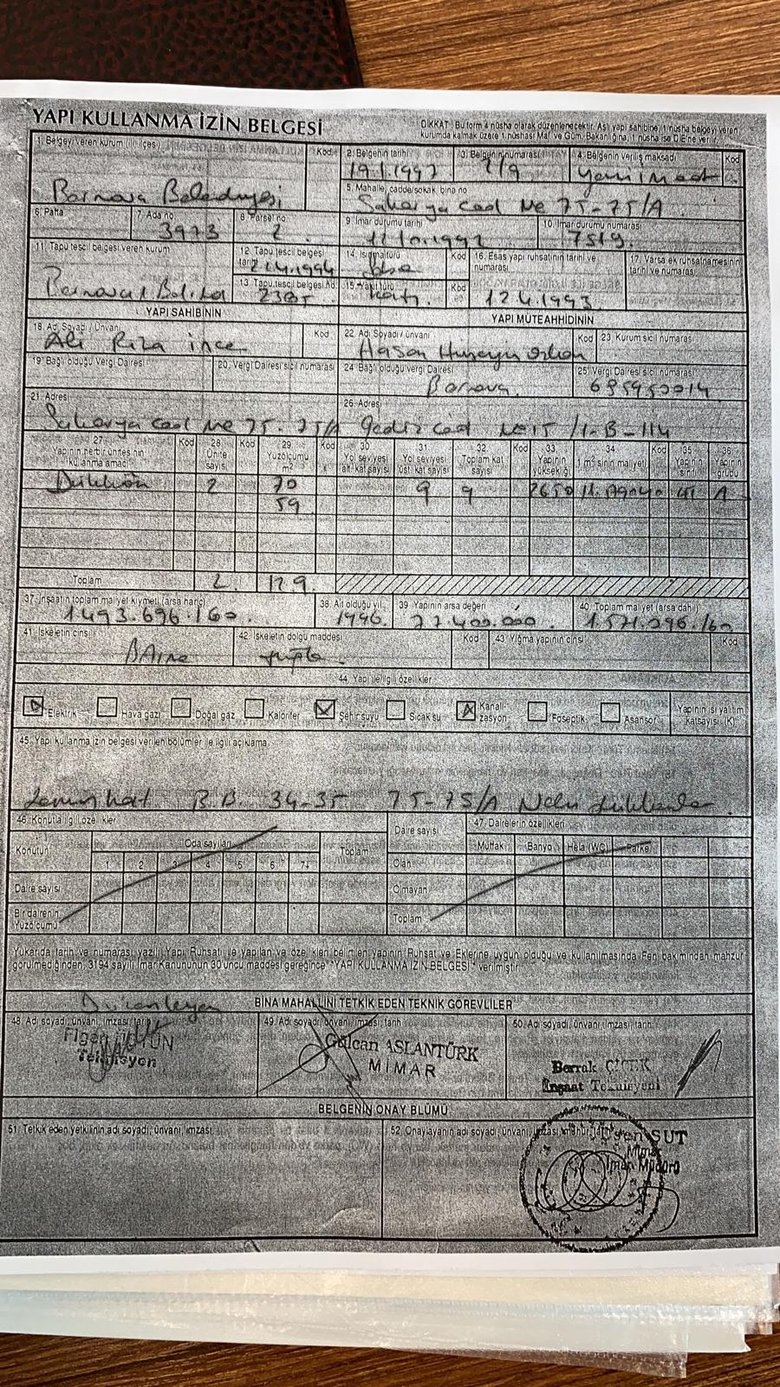 YAPI KULLANMA İZİN BELGESİ
DİKKAT: Bu form 4 nüsha olarak düzenlenecektir. Aslı yapı sahibine, 1 nüsha belgeyi veren
kurumda kalmak üzere 1 nüshası Mal. ve Güm. Bakanlığına, 1 nüsha ise DİE'ne verilir.
1. Belgeyi veren kurum İlçesi Kod
Bornova Belediyesi
2. Belgenin tarihi 3. Belgenin numarası 4. Belgenin veriliş maksadı Kod
1/9
5. Mahalle, cadde/sokak, bina no
Sakarya cad No 75-75/A
6. Pafta 7. Ada no 8. Parsel no 9. İmar durumu tarihi 10. İmar durumu numarası
3973 2 7519
11. Tapu tescil belgesi veren kurum 12. Tapu tescil belgesi tarihi 14. Isıtma türü Kod 16. Esas yapı ruhsatının tarihi ve numarası 17. Varsa ek ruhsatnamesinin tarihi ve numarası
21.4.1994 Soba
13. Tapu tescil belgesi No 15. Yakıt türü Kod
Bornova 2385 Katı 12.4.1993
YAPI SAHİBİNİN YAPI MÜTEAHHİDİNİN
18. Adı Soyadı / Ünvanı Kod 22. Adı Soyadı / ünvanı Kod 23. Kurum sicil numarası
Ali Rıza ince Hasan Hüseyin
19. Bağlı olduğu Vergi Dairesi 20. Vergi Dairesi sicil numarası 24. Bağlı olduğu vergi Dairesi 25. Vergi Dairesi sicil numarası
Bornova 685950014
21. Adresi 26. Adresi
Sakarya cad No 75-75/A Gediz cad No 15 /1-B-114
27. Yapının herbir ünitesinin kullanma amacı Kod 28. Ünite sayısı Kod 29. Yüzölçümü m² Kod 30. Yol seviyesi alt kat sayısı 31. Yol seviyesi üst kat sayısı 32. Toplam kat sayısı 33. Yapının yüksekliği 34. 1 m²sinin maliyeti Kod 35. Yapının sınıfı 36. Yapının grubu
Dükkan 2 70 9 9 2650 A
59
Toplam 2. 129.
37. İnşaatın toplam maliyet kıymeti (arsa hariç) 38. Ait olduğu yıl 39. Yapının arsa değeri 40. Toplam maliyet (arsa dahil)
1493.696.160. 1996. 77.400.000. 1.571.096.160
41. İskeletin cinsi 42. İskeletin dolgu maddesi Kod 43. Yığma yapının cinsi Kod
BAine tuğla
44. Yapı ile ilgili özellikler
Elektrik Hava gazı Doğal gaz Kalorifer Şehir suyu Sıcak su Kanalizasyon Foseptik Asansör Yapının ısı yalıtım katsayısı (K)
45. Yapı kullanma izin belgesi verilen bölümler ile ilgili açıklama
Zemin kat B.B. 34-35 75-75/A Nolu dükkanlar.
46. Konutla ilgili özellikler Daire sayısı 47. Dairelerin özellikleri
Konutun Oda sayıları Toplam Mutfak Banyo Hela (WC) Parke
1 2 3 4 5 6 7+ Olan
Daire sayısı Olmayan
Bir dairenin Yüzölçümü Toplam
Yukarıda tarih ve numarası yazılı Yapı Ruhsatı ile yapılan ve özellikleri belirlenen yapının Ruhsat ve Eklerine uygun olduğu ve kullanılmasında Fen bakımından mahzur
görülmediğinden, 3194 sayılı İmar Kanununun 30 uncu maddesi gereğince "YAPI KULLANMA İZİN BELGESİ" verilmiştir.
Düzenleyen BİNA MAHALLİNİ TETKİK EDEN TEKNİK GÖREVLİLER
48. Adı soyadı, ünvanı, imzası, tarih 49. Adı soyadı, ünvanı, imzası, tarih 50. Adı soyadı, ünvanı, imzası, tarih
Gülcan ASLANTÜRK
MİMAR
Berrak ÇİÇEK
İnşaat Teknisyeni
BELGENİN ONAY BLÜMÜ
51. Tetkik eden yetkilinin adı soyadı, ünvanı, imzası 52. Onaylayanın adı soyadı, ünvanı, imzası
SUT
Mimar
İmar Müdürü